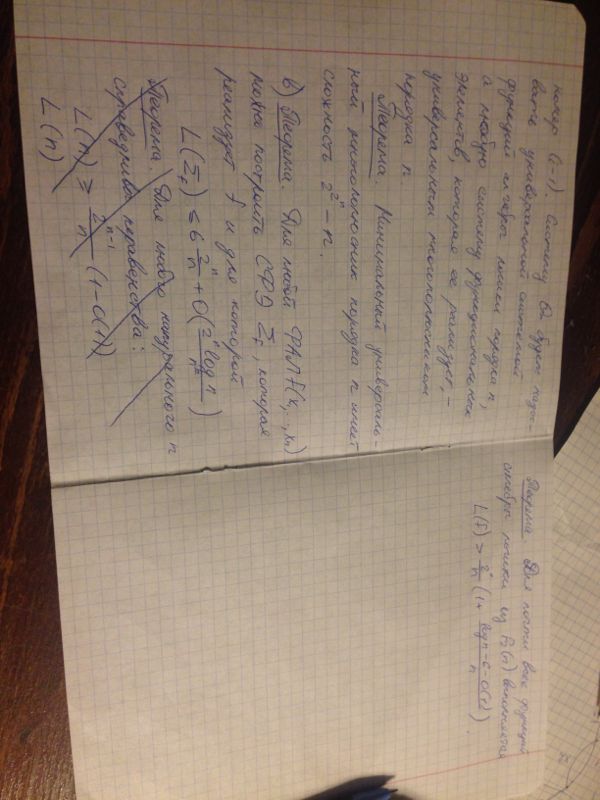 номер (i-1). Систему Qn будем назы-
вать универсальной системой
функций алгебры логики порядка n,
а любую систему функциональных
элементов, которая ее реализует, –
универсальным многополюсником
порядка n.
Теорема. Минимальный универсаль-
ный многополюсник порядка n имеет
сложность 2^{2^n} - n.
в) Теорема. Для любой ФАЛ f(x₁,...,xₙ)
можно построить СФЭ Σ_f, которая
реализует f и для которой
L(Σ_f) ≤ 6 2^n/n + O(2^n log n / n²)
Теорема. Для любого натурального n
справедливо неравенство:
L(n) ≥ 2^{n-1}/n (1-O(1))
L(n)
Теорема. Для почти всех функций
алгебры логики из P₂(n) выполняется
L(f) > 2^n/n (1+ (log n - c - O(1))/n).